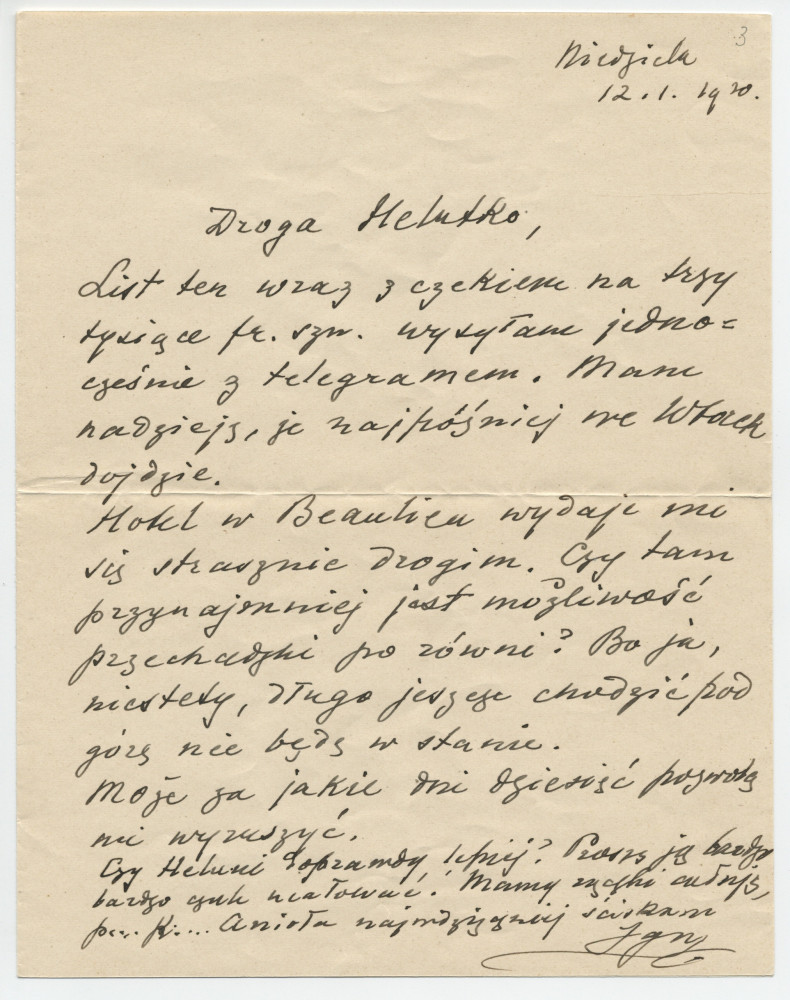 3
Niedziela
12.1.1930.
Droga Helutko,
List ten wraz z czekiem na trzy
tysiące fr. szw. wysyłam jedno=
cześnie z telegramem. Mam
nadzieję, że najpóźniej we Wtorek
dojdzie.
Hotel w Beaulieu wydaje mi
się strasznie drogim. Czy tam
przynajmniej jest możliwość
przechadzki po równi? Bo ja,
niestety, długo jeszcze chodzić pod
górę nie będę w stanie.
Może za jakie dni dziesięć pozwolą
mi wyruszyć.
Czy Heluni doprawdy lepiej? Proszę ją bardzo
bardzo czule ucałować! Mamy rączki całuję,
p... k... Anioła najwdzięczniej ściskam
Ign